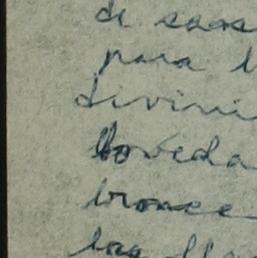 de sans
para l
divini
boveda
bronce
las lla